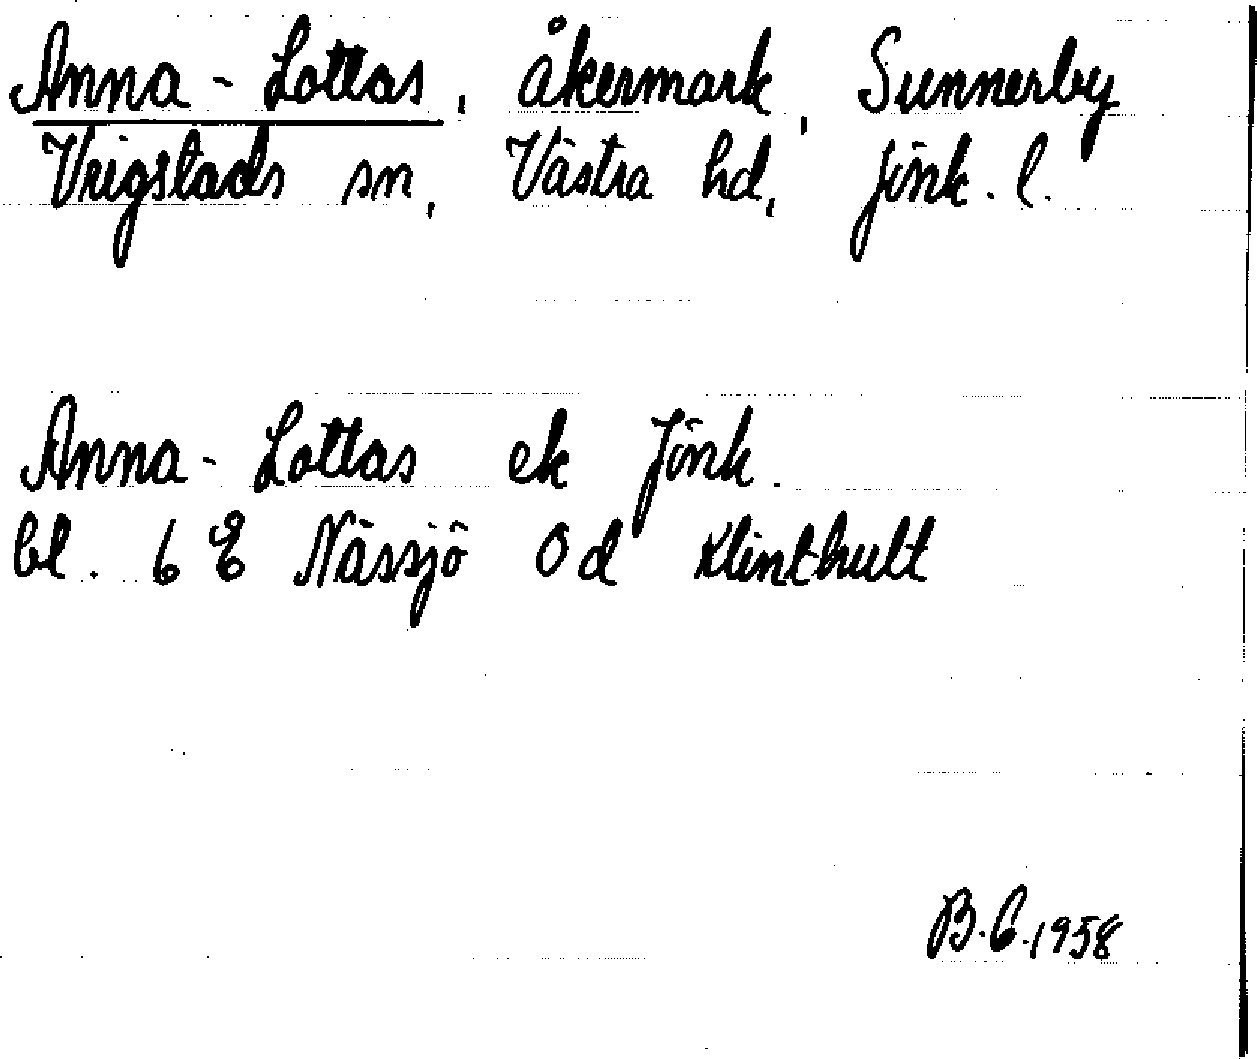 Anna-Lottas, åkermark, Sunnerby
Vrigstads sn, Västra hd, Jönk. l.
Anna-Lottas ek Jönk.
bl. 6 E Nässjö 0 d Klinthult
B.C. 1958